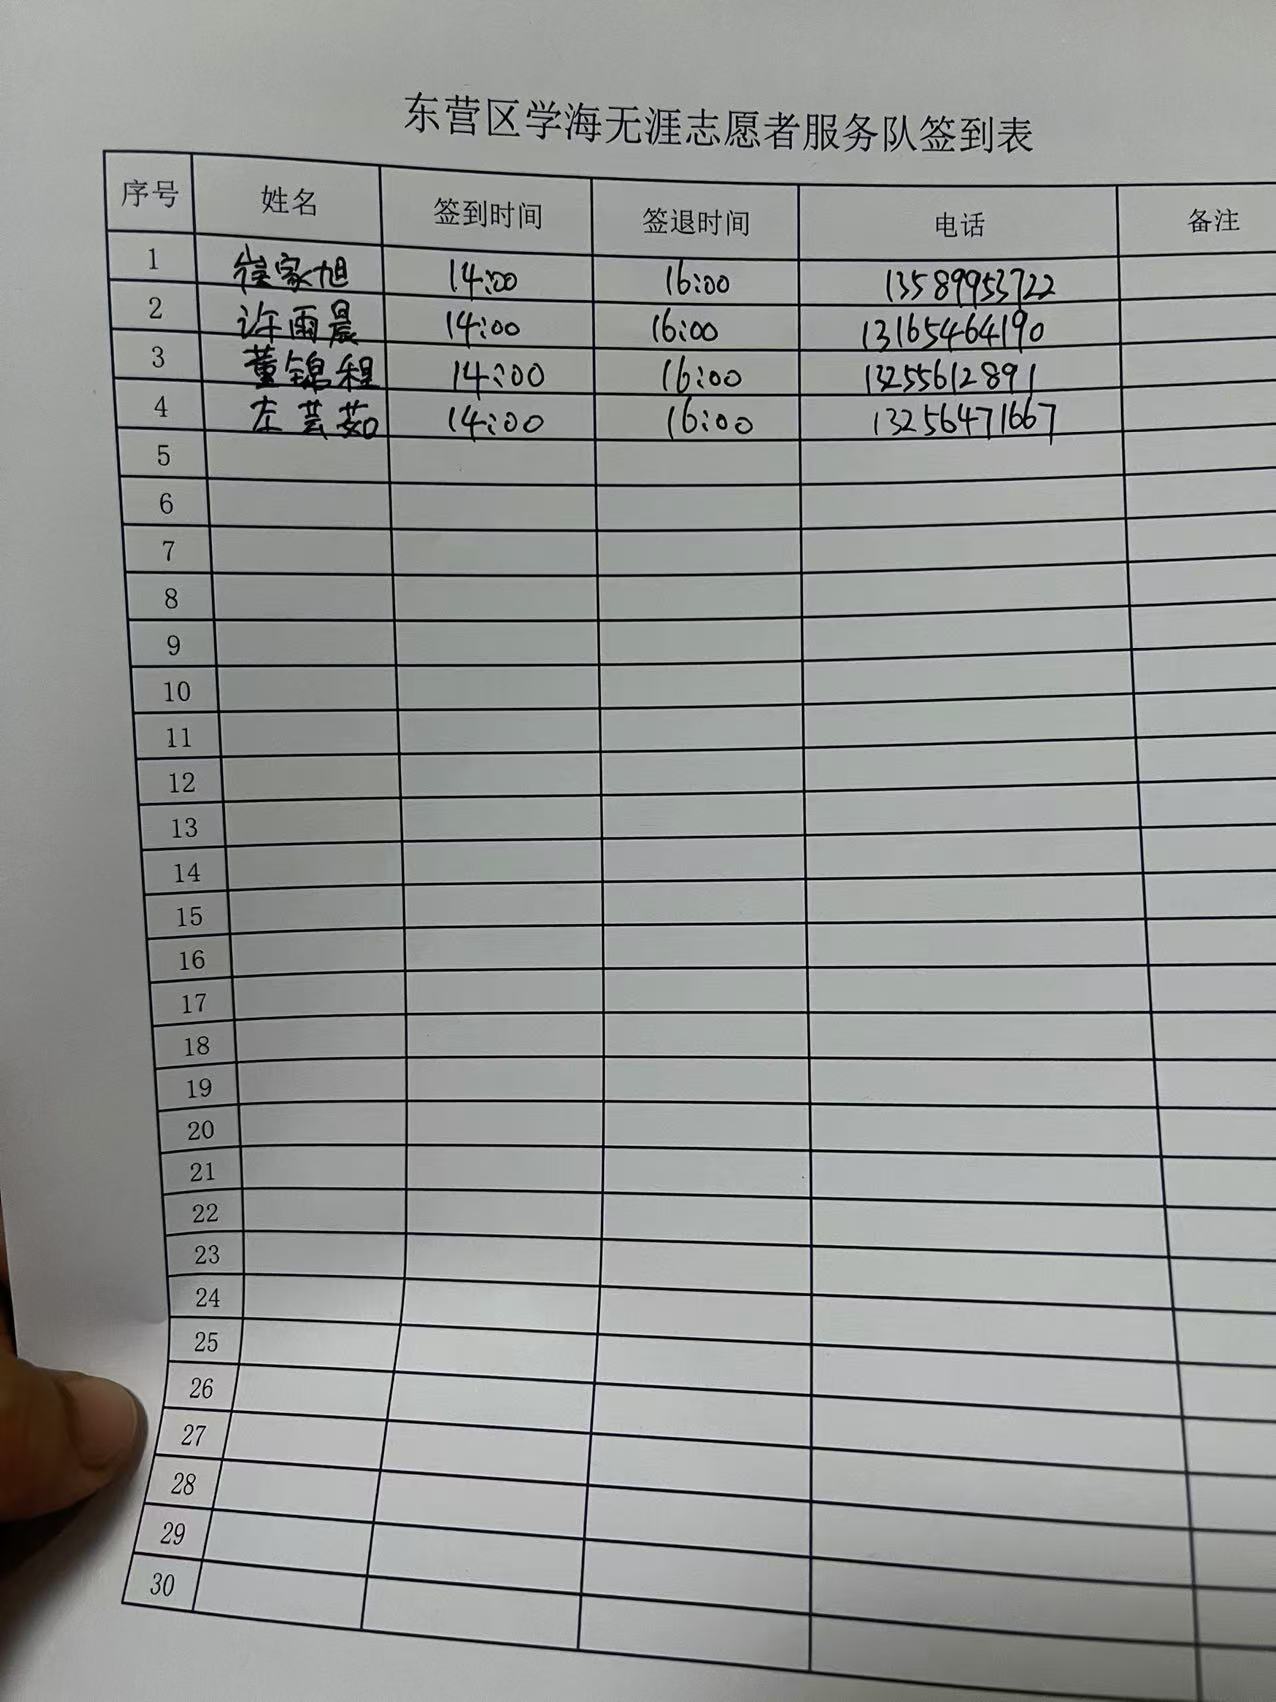 东营区学海无涯志愿者服务队签到表
序号 姓名 签到时间 签退时间 电话 备注
1 崔家旭 14:00 16:00 13589953722
2 许雨晨 14:00 16:00 13165464190
3 董锦程 14:00 16:00 13255612891
4 左芸茹 14:00 16:00 13256471667
5
6
7
8
9
10
11
12
13
14
15
16
17
18
19
20
21
22
23
24
25
26
27
28
29
30